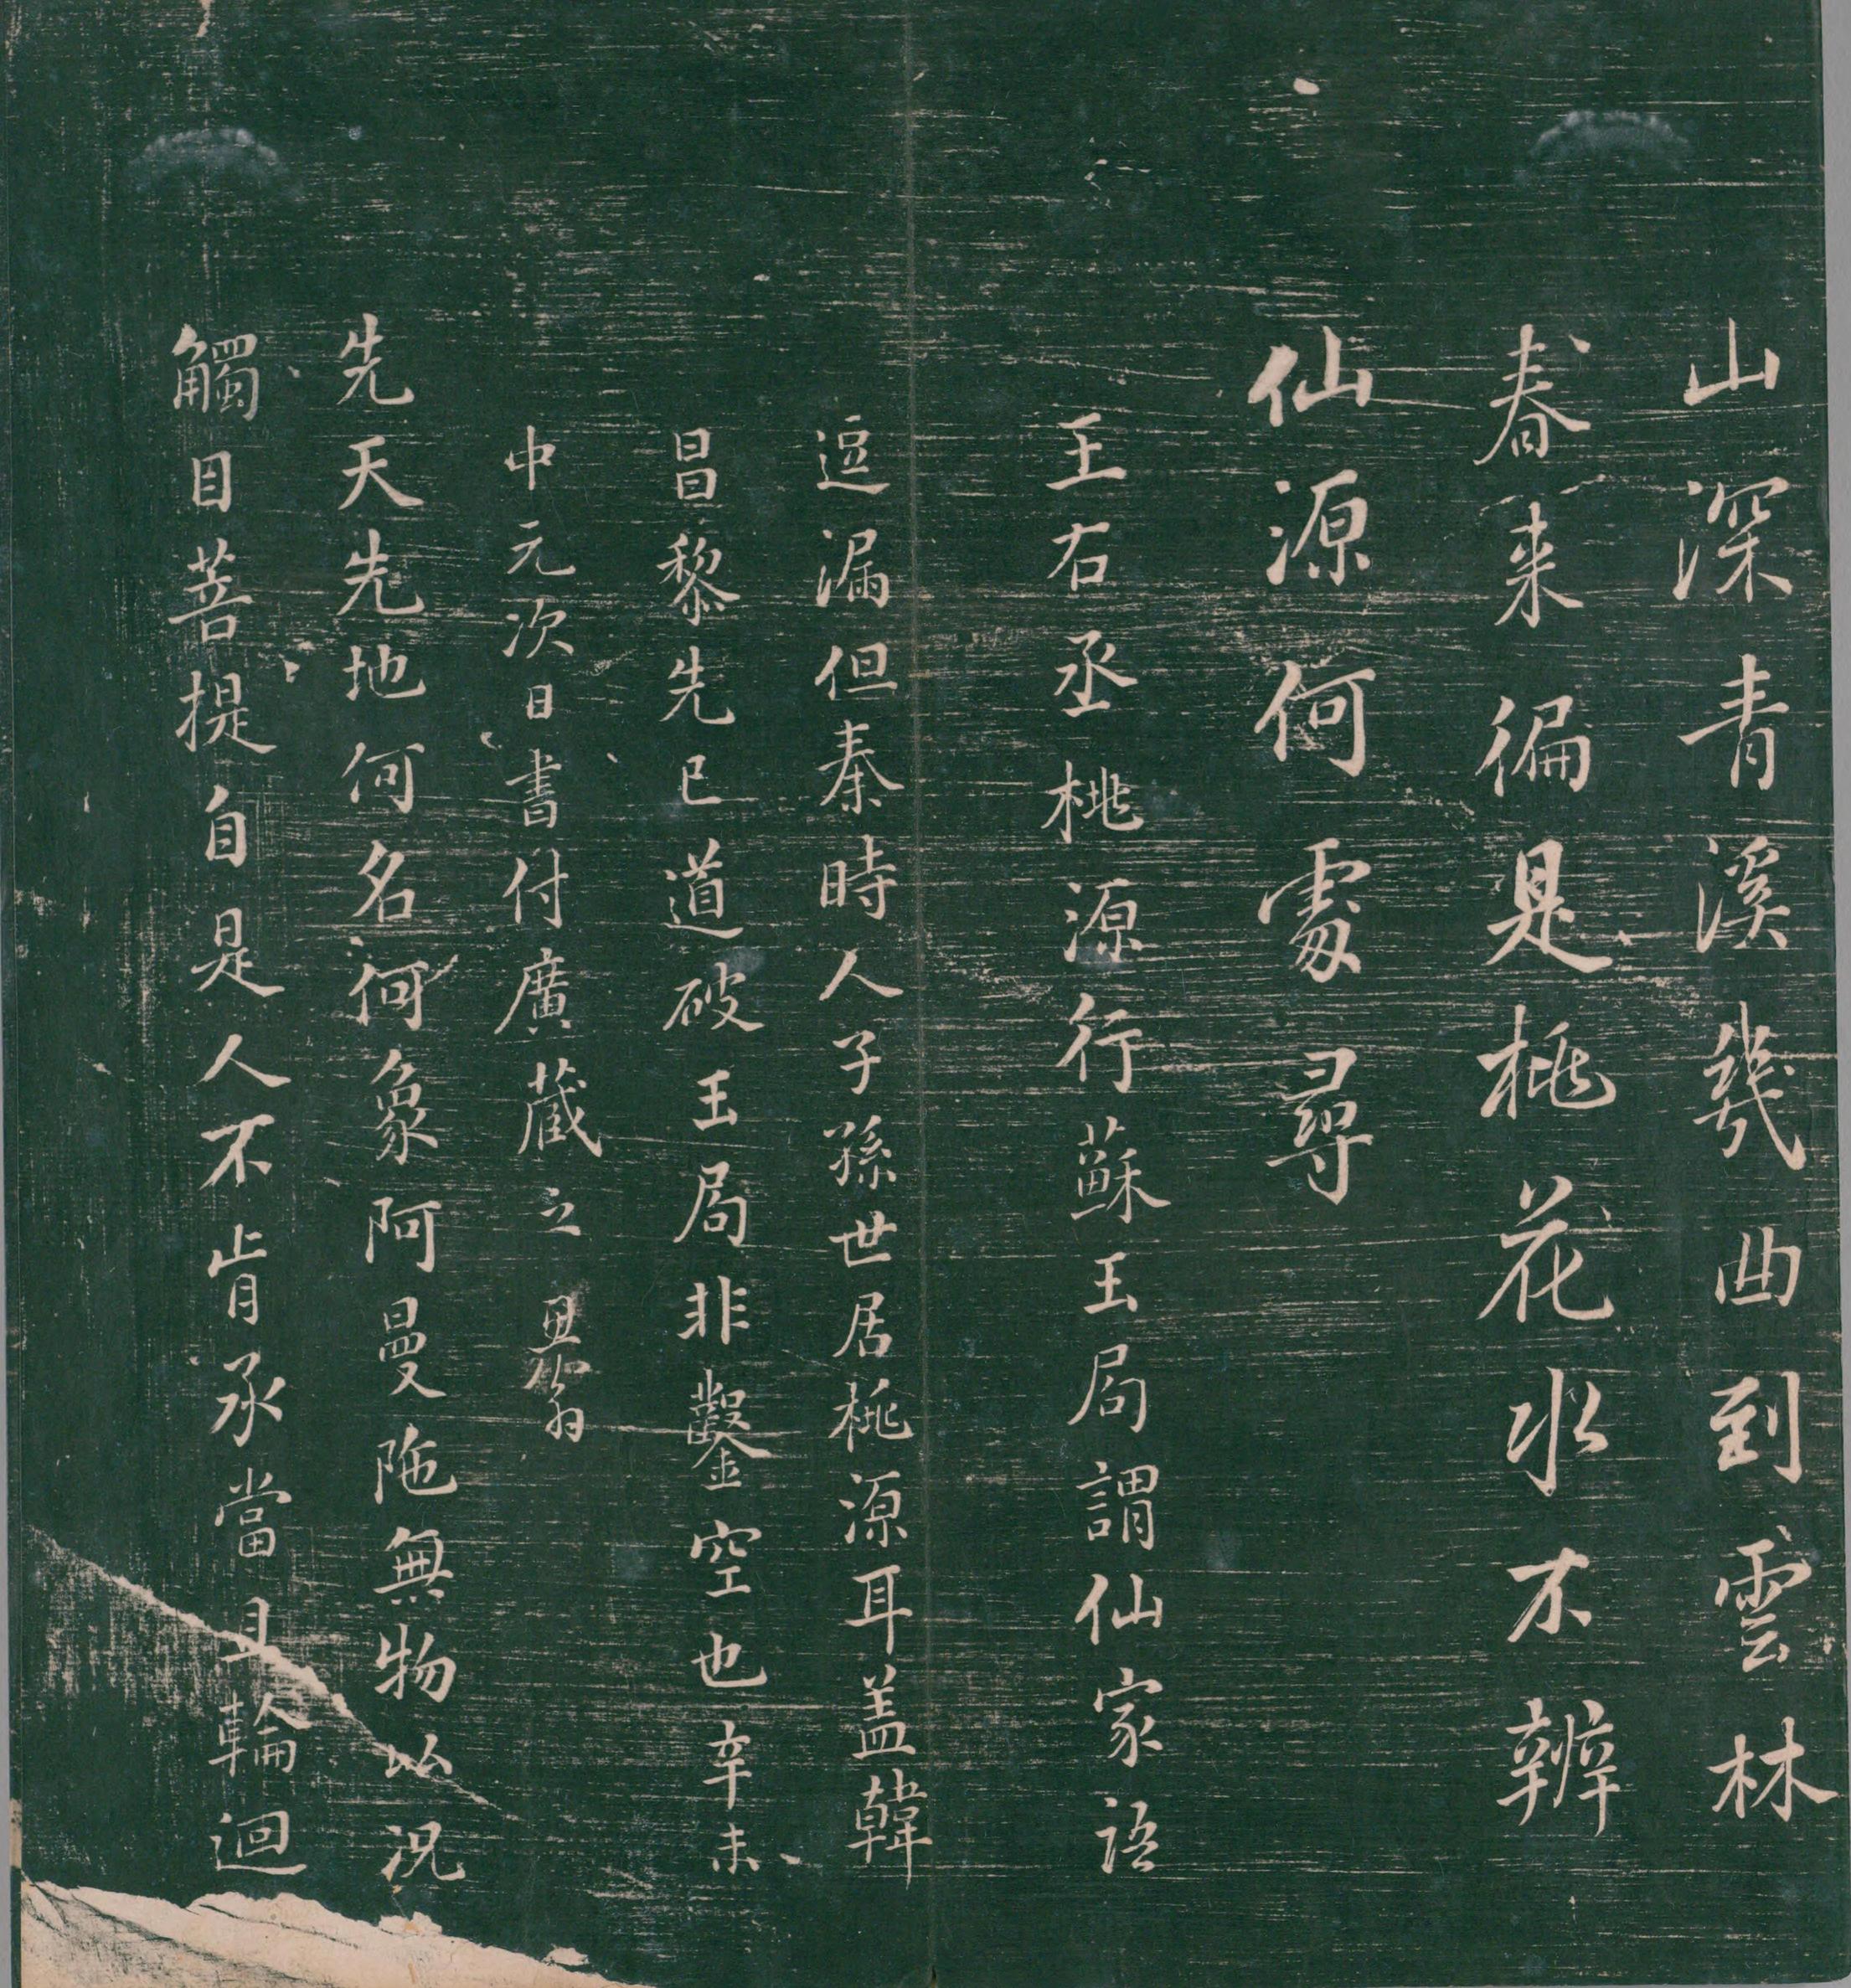 山深青溪幾曲到雲林
春来徧是桃花水不辨
仙源何處尋
王右丞桃源行蘇玉局謂仙家語
逗漏但秦時人子孫世居桃源耳盖韓
昌黎先已道破玉局非鑿空也辛未
中元次日書付廣蔵之 思翁
先天先地何名何象阿曼陁無物以况
觸目菩提自是人不肯承當且輪迴